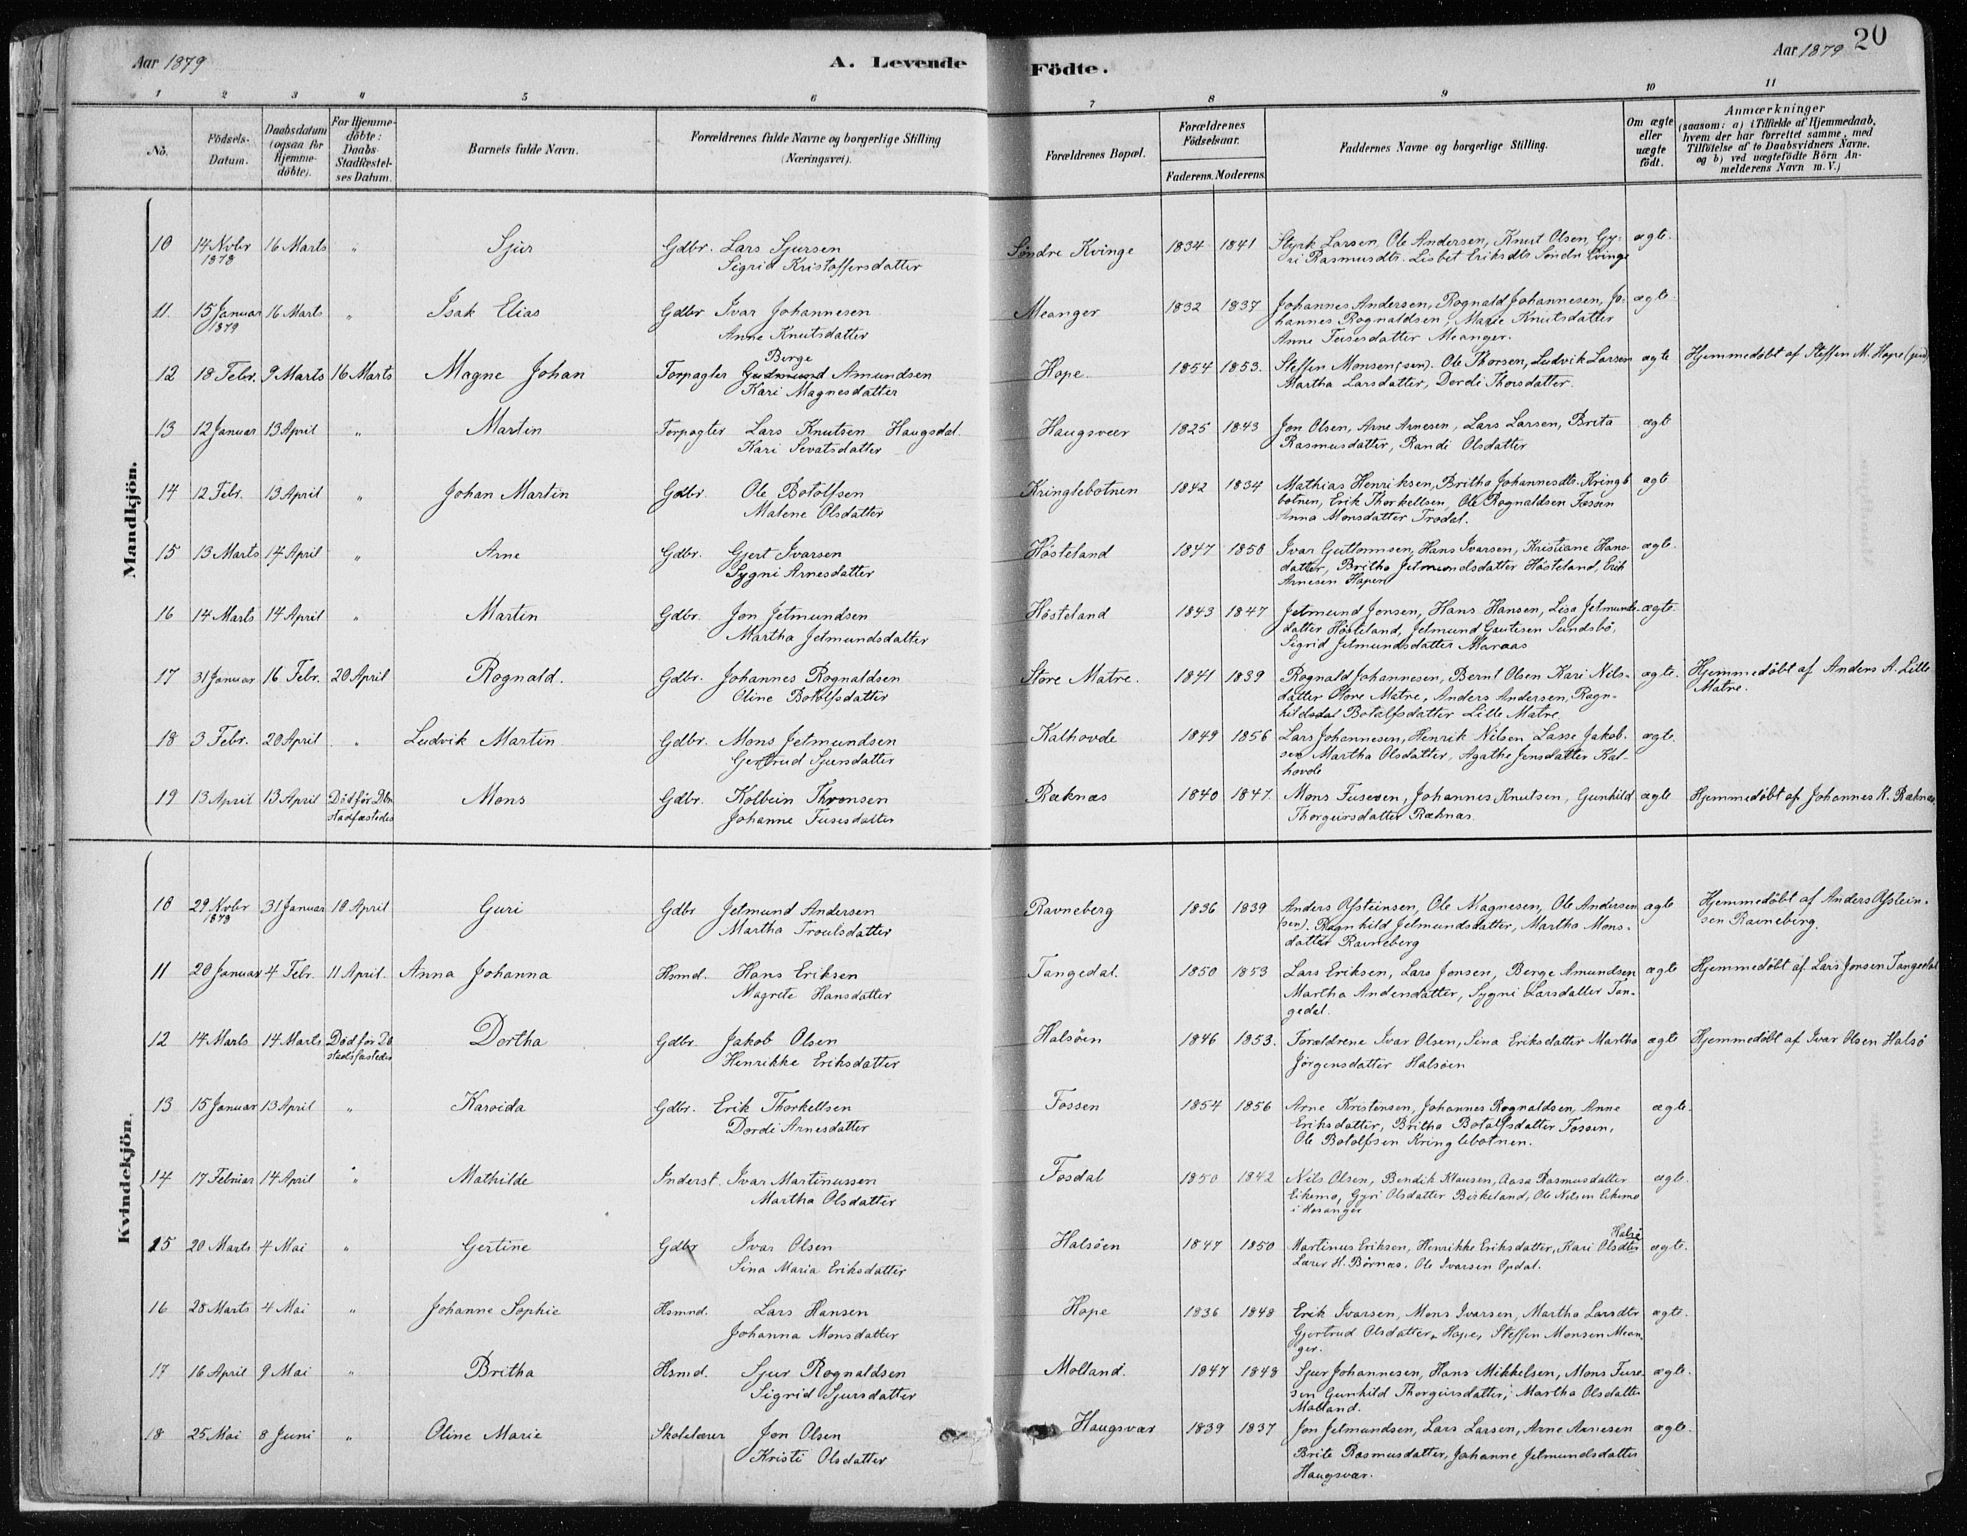 Aar 1879
A. Levende
Födte.
Aar 1879
20
1 2 3 4 5 6 7 8 9 10 11
No.
Födsels-Datum.
Daabsdatum (ogsaa for Hjemme-döbte).
For Hjemme-döbte: Daabs-Stadfæstel-ses Datum.
Barnets fulde Navn.
Forældrenes fulde Navne og borgerlige Stilling (Næringsvei).
Forældrenes Bopæl.
Forældrenes Födselsaar.
Faderens. Moderens.
Faddernes Navne og borgerlige Stilling.
Om ægte eller uægte födt.
Anmærkninger
(saasom: a) i Tilfælde af Hjemmedaab,
hvem der har forrettet samme, med
Tilföielse af to Daabsvidners Navne.
og b) ved uægtefödte Börn An-
melderens Navn m. V.)
Mandkjön.
10 14 Novbr 1878 16 Marts " Sjur Gdbr. Lars Sjursen Søndre Kvinge 1834 1841 Styrk Larsen, Ole Andersen, Knut Olsen, Gy- ægte.
Sigrid Kristoffersdatter ri Rasmusdtr. Lisbet Eriksdtr Søndre Kvinge
11. 15 Januar 1879 16 Marts " Isak Elias Gdbr Ivar Johannesen Meanger 1832 1837 Johannes Andersen, Rognald Johannesen, Jo- ægte.
Anne Knutsdatter hannes Rognaldsen, Marie Knutsdatter
Anne Fusesdatter Meanger.
12 18 Febr. 9 Marts 16 Marts Magne Johan Torpagter Gudmund Berge Amundsen Hope. 1854 1853. Steffen Monsen (sen). Ole Thorsen, Ludvik Larsen ægte Hjemmedøbt af Steffen M. Hope (jun)
Kari Magnesdatter Martha Larsdatter, Dordi Thorsdatter.
13 12 Januar 13 April " Martin Torpagter Lars Knutsen Haugsdal Haugsveer 1825 1843 Jon Olsen, Arne Arnesen, Lars Larsen, Brita ægte
Kari Sevatsdatter Rasmusdatter, Randi Olsdatter
14 12 Febr. 13 April " Johan Martin Gdbr Ole Botolfsen Kringlebotnen 1842 1834 Mathias Henriksen, Britha Johannesdtr. Kringle ægte
Malene Olsdatter botnen, Erik Thorkellsen, Ole Rognaldsen Fossen
Anna Monsdatter Trodal.
15 13 Marts 14 April " Arne Gdbr. Gjert Ivarsen Høsteland 1847 1850 Ivar Guttormsen, Hans Ivarsen, Kristiane Hans- ægte.
Sygni Arnesdatter datter, Britha Jetmundsdatter Høsteland, Erik
Arnesen Hopen
16 14 Marts 14 April " Martin Gdbr. Jon Jetmundsen Høsteland 1843 1847 Jetmund Jonsen, Hans Hansen, Lisa Jetmunds- ægte.
Martha Jetmundsdatter datter Høsteland, Jetmund Gautesen Sundsbø,
Sigrid Jetmundsdatter Maraas
17 31 Januar 16 Febr. 20 April Rognald. Gdbr. Johannes Rognaldsen Store Matre. 1841 1839 Rognald Johannesen, Bernt Olsen Kari Nils- ægte. Hjemmedøbt af Anders A. Lille
Oline Botolfsdatter datter Store Matre, Anders Andersen, Ragn- Matre.
hild Botolfsdatter Lille Matre
18 3 Febr. 20 April " Ludvik Martin Gdbr. Mons Jetmundsen Kalhovde 1849 1856 Lars Johannesen, Henrik Nilsen Lasse Jakob- ægte.
Gertrud Sjursdatter sen Martha Olsdatter, Agathe Jensdatter Kal-
hovde
19 13 April 13 April Död för Dbs stadfæstedes Mons Gdbr. Kolbein Thronsen Ræknæs 1840 1847. Mons Fusesen, Johannes Knutsen, Gunhild ægte Hjemmedøbt af Johannes K. Ræknæs
Johanne Fusesdatter Thorgeirsdatter Ræknæs.
Kvindekjön.
10 29 Novbr 1878 31 Januar 10 April Guri Gdbr Jetmund Andersen Ravneberg 1836 1839 Anders Ofsteinsen, Ole Magnesen, Ole Andersen ægte Hjemmedøbt af Anders Ofstein-
Martha Troulsdatter (sen). Ragnhild Jetmundsdatter, Martha Mons- sen Ravneberg.
datter Ravneberg
11 20 Januar 4 Febr. 11 April. Anna Johanna Hsmd. Hans Eriksen Tangedal. 1850 1853 Lars Eriksen, Lars Jonsen, Berge Amundsen ægte Hjemmedøbt af Lars Jonsen Tangedal
Magrete Hansdatter Martha Andersdatter, Sygni Larsdatter Tan-
gedal.
12 14 Marts 14 Marts Död för Db stadfæstedes Dortha Gdbr. Jakob Olsen Halsöen 1846 1853. Forældrene Ivar Olsen, Sina Eriksdatter Martha ægte Hjemmedøbt af Ivar Olsen Halsö
Henrikke Eriksdatter Jørgensdatter Halsöen
13 15 Januar 13 April " Karoida Gdbr. Erik Thorkellsen Fossen 1854 1856 Arne Kristensen, Johannes Rognaldsen, Anne ægte.
Dordi Arnesdatter Eriksdatter, Britha Botolfsdatter Fossen,
Ole Botolfsen Kringlebotnen.
14 17 Februar 14 April " Mathilde Inderst. Ivar Martinussen Fosdal 1850 1842 Nils Olsen, Bendik Klausen, Aasa Rasmusdatter ægte.
Martha Olsdatter Eikemo, Gyri Olsdatter Birkeland, Ole Nilsen Eikemo
i Hosanger
15 20 Marts 4 Mai " Gertine Gdbr Ivar Olsen Halsöen 1847 1850 Martinus Eriksen, Henrikke Eriksdatter, Kari Olsdtr Halsö ægte.
Sina Maria Eriksdatter Lærer H. Børnæs. Ole Ivarsen Opdal.
16 28 Marts 4 Mai " Johanne Sophie Hsmnd. Lars Hansen Hope 1836 1848 Erik Ivarsen, Mons Ivarsen, Martha Larsdtr ægte.
Johanna Monsdatter Gjertrud Olsdatter, Hope, Steffen Monsen Mean-
ger.
17 16 April 9 Mai " Britha Hsmd. Sjur Rognaldsen Molland. 1847 1848 Sjur Johannesen, Hans Mikkelsen, Mons Fuse- ægte.
Sigrid Sjursdatter sen Gunhild Thorgeirsdatter, Martha Olsdatter
Molland.
18 25 Mai 8 Juni " Oline Marie Skolelærer Jon Olsen Haugsvær 1839 1837 Jon Jetmundsen, Lars Larsen, Arne Arnesen ægte.
Kristi Olsdatter Brite Rasmusdatter, Johanne Jetmundsdatter
Haugsvær.